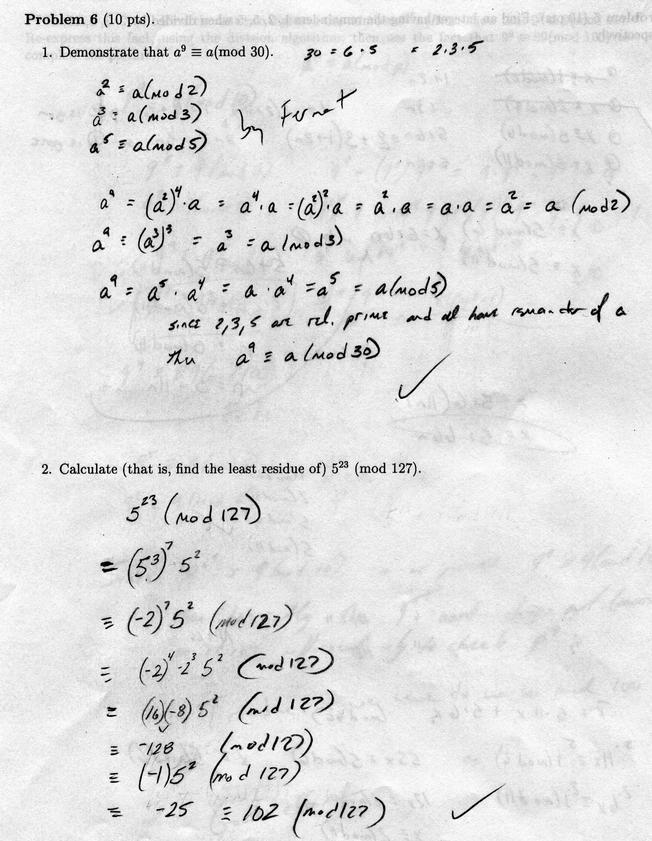 Problem 6 (10 pts).
1. Demonstrate that a⁹ ≡ a(mod 30). 30 = 6 · 5 = 2·3·5
a² ≡ a(mod 2)
a³ ≡ a(mod 3) by Fermat
a⁵ ≡ a(mod 5)
a⁹ = (a²)⁴·a = a⁴·a = (a²)²·a = a²·a = a·a = a² = a (mod 2)
a⁹ = (a³)³ = a³ = a (mod 3)
a⁹ = a⁵ · a⁴ = a · a⁴ = a⁵ = a(mod 5)
since 2,3,5 are rel. prime and all have remainder of a
thu a⁹ ≡ a (mod 30)
✓
2. Calculate (that is, find the least residue of) 5²³ (mod 127).
5²³ (mod 127)
= (5³)⁷ 5²
≡ (-2)⁷ 5² (mod 127)
≡ (-2)⁴ -2³ 5² (mod 127)
≡ (16)(-8) 5² (mod 127)
≡ -128 (mod 127)
≡ (-1)5² (mod 127)
≡ -25 ≡ 102 (mod 127) ✓